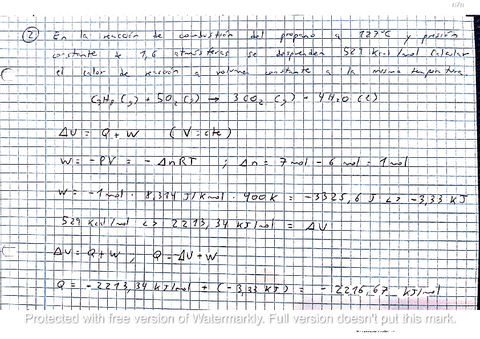 ② En la reacción de combustión del propano a 127ºC y presión
constante de 1,6 atmósferas se desprenden 529 Kcal/mol. Calcular
el calor de reacción a volumen constante a la misma temperatura.
C₃H₈ (g) + 5O₂ (g) → 3CO₂ (g) - 4H₂O (l)
ΔU = Q + W (V = cte)
W = -PV = -ΔnRT ; Δn = 7mol - 6 mol = 1 mol
W = -1 mol · 8,314 J/Kmol · 400 K = -3325,6 J <> -3,33 KJ
529 Kcal/mol <> 2213,34 KJ/mol = ΔU
ΔU = Q + W , Q = ΔU + W
Q = -2213,34 KJ/mol + (-3,33 KJ) = -2216,67 KJ/mol
Protected with free version of Watermarkly. Full version doesn't put this mark.